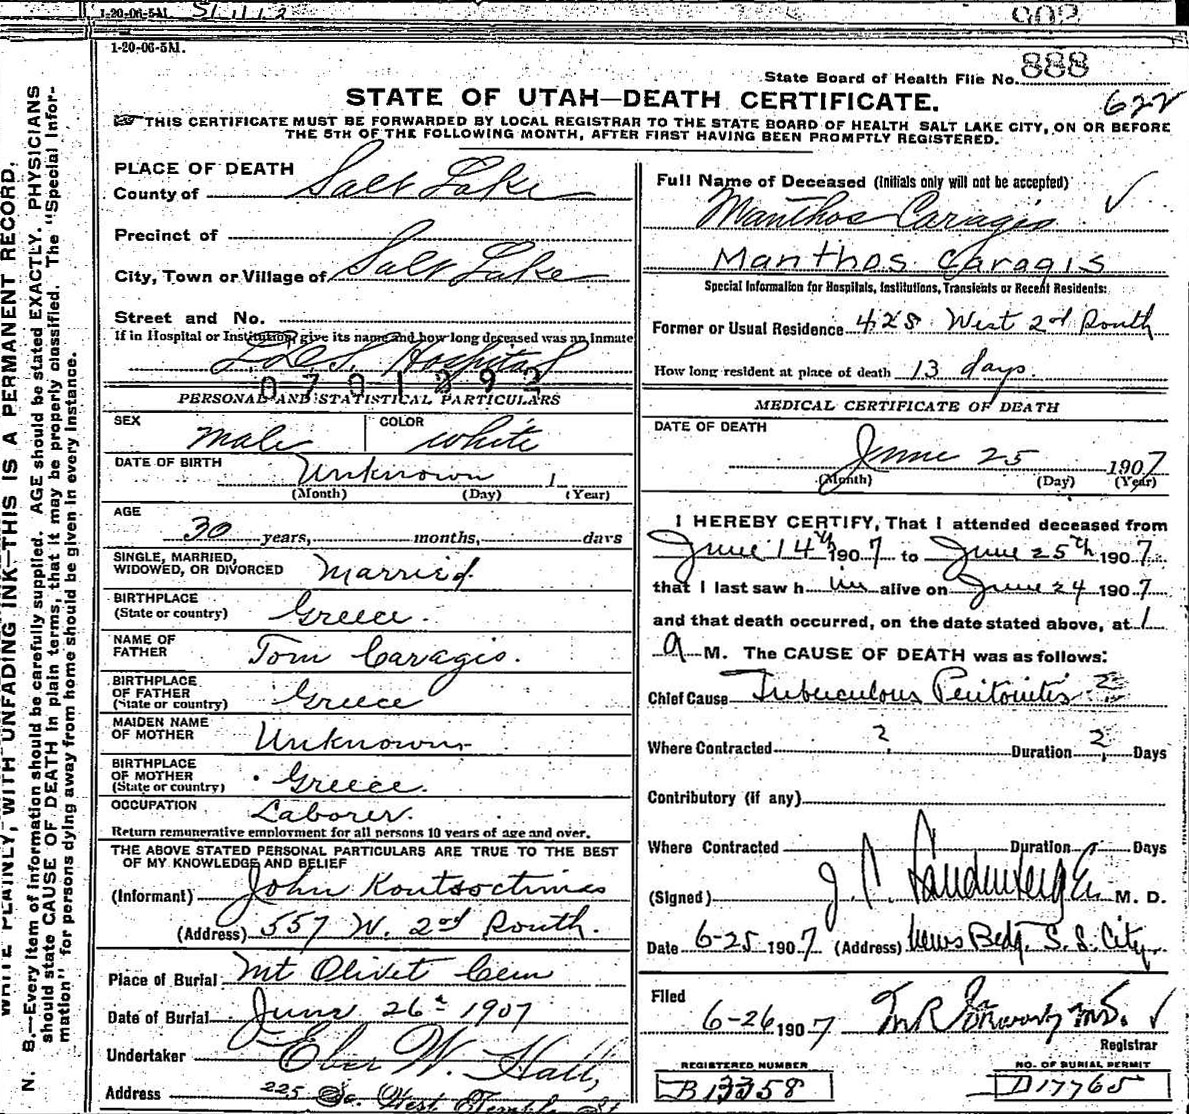 1-20-06-5M.
902
1-20-06-5M.
State Board of Health File No. 888
622
STATE OF UTAH—DEATH CERTIFICATE.
THIS CERTIFICATE MUST BE FORWARDED BY LOCAL REGISTRAR TO THE STATE BOARD OF HEALTH SALT LAKE CITY, ON OR BEFORE
THE 5TH OF THE FOLLOWING MONTH, AFTER FIRST HAVING BEEN PROMPTLY REGISTERED.
WRITE PLAINLY, WITH UNFADING INK—THIS IS A PERMANENT RECORD.
N. B.—Every item of information should be carefully supplied. AGE should be stated EXACTLY. PHYSICIANS
should state CAUSE OF DEATH in plain terms, that it may be properly classified. The "Special Infor-
mation" for persons dying away from home should be given in every instance.
PLACE OF DEATH
County of Salt Lake
Precinct of
City, Town or Village of Salt Lake
Street and No.
If in Hospital or Institution, give its name and how long deceased was an inmate
L.D.S. Hospital
0701292
PERSONAL AND STATISTICAL PARTICULARS
SEX Male COLOR White
DATE OF BIRTH Unknown 1
(Month) (Day) (Year)
AGE
30 years, months, days
SINGLE, MARRIED,
WIDOWED, OR DIVORCED Married.
BIRTHPLACE
(State or country) Greece.
NAME OF
FATHER Tom Caragis.
BIRTHPLACE
OF FATHER
(State or country) Greece
MAIDEN NAME
OF MOTHER Unknown
BIRTHPLACE
OF MOTHER
(State or country) Greece.
OCCUPATION Laborer.
Return remunerative employment for all persons 10 years of age and over.
THE ABOVE STATED PERSONAL PARTICULARS ARE TRUE TO THE BEST
OF MY KNOWLEDGE AND BELIEF
(Informant) John
(Address) 557 W. 2nd South.
Place of Burial Mt Olivet Cem
Date of Burial June 26th 1907
Undertaker Eber W. Hall,
Address 225 So. West Temple St
Full Name of Deceased (Initials only will not be accepted)
Manthos Caragis
Manthos Caragis
Special Information for Hospitals, Institutions, Transients or Recent Residents:
Former or Usual Residence 428 West 2nd South
How long resident at place of death 13 days.
MEDICAL CERTIFICATE OF DEATH
DATE OF DEATH
June 25 1907
(Month) (Day) (Year)
I HEREBY CERTIFY, That I attended deceased from
June 14th 1907 to June 25th 1907
that I last saw him alive on June 24 1907
and that death occurred, on the date stated above, at 1
a M. The CAUSE OF DEATH was as follows:
Chief Cause Tuberculous Peritonitis
Where Contracted ? Duration ? Days
Contributory (if any)
Where Contracted Duration Days
(Signed) J. C. Landenberger M. D.
Date 6-25 1907 (Address) News Bldg. S. L. City
Filed
6-26 1907
Registrar
REGISTERED NUMBER
B13358
NO. OF BURIAL PERMIT
D17765